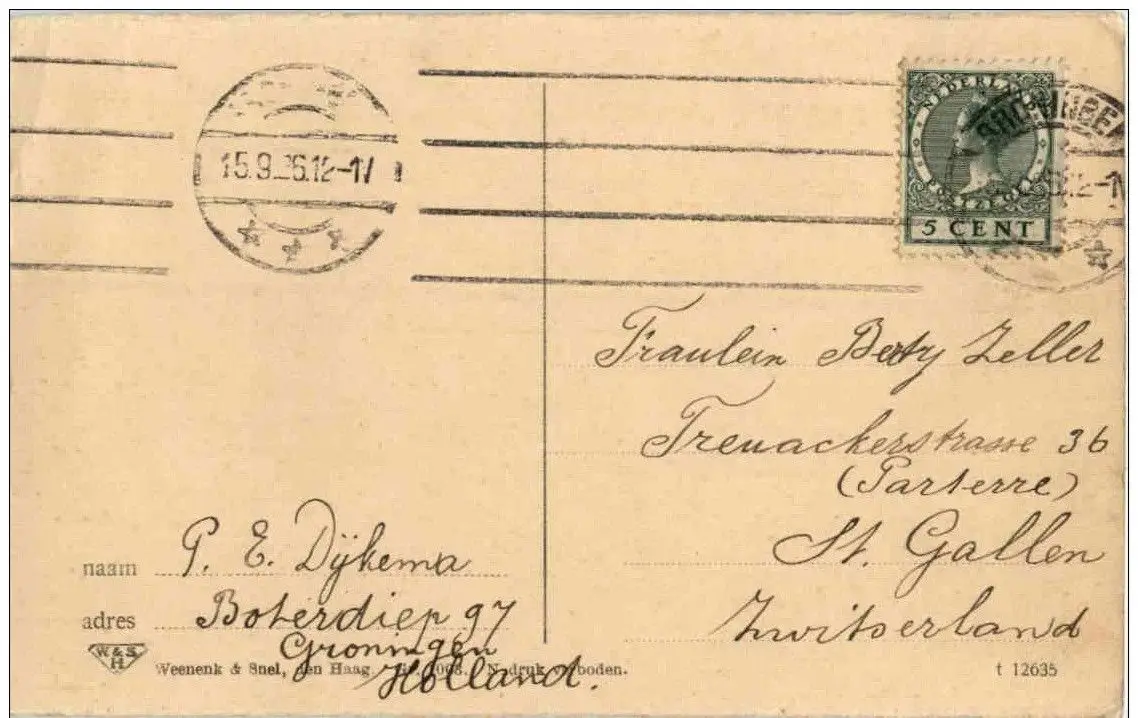 15.9. 6.12-1V
NEDERLAND
GRONINGEN
POSTZEGEL
5 CENT
Fraulein Berty Zeller
Treuackerstrasse 36
(Parterre)
St. Gallen
Zwitserland
naam P. E. Dijkema
adres Boterdiep 97
Groningen
Holland.
W & S
H
Weenenk & Snel, den Haag. Nadruk verboden.
t 12635